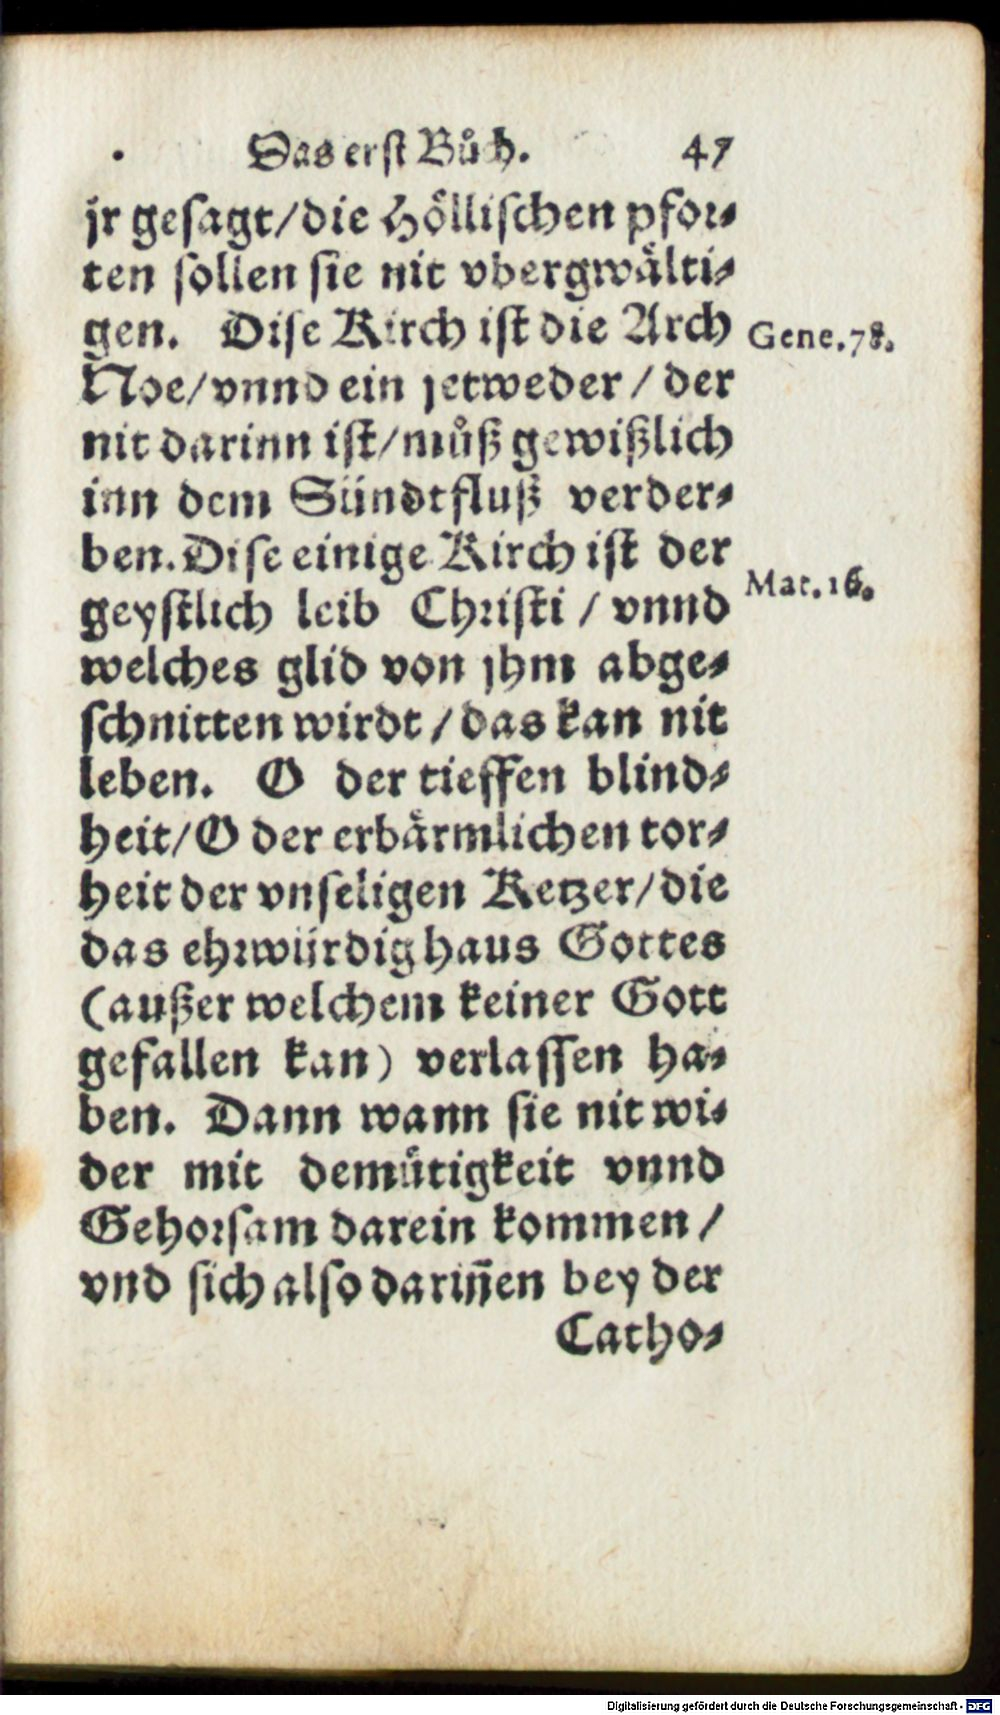 Das erst Bůch. 47
jr gesagt/die Höllischen pfor-
ten sollen sie nit vbergwälti-
gen. Dise Kirch ist die Arch
Gene.78.
Noe/vnnd ein jetweder / der
nit darinn ist/můß gewißlich
inn dem Sündtfluß verder-
ben. Dise einige Kirch ist der
Mat.16.
geystlich leib Christi / vnnd
welches glid von jhm abge-
schnitten wirdt / das kan nit
leben. O der tieffen blind-
heit/O der erbärmlichen tor-
heit der vnseligen Ketzer/die
das ehrwürdig haus Gottes
(außer welchem keiner Gott
gefallen kan) verlassen ha-
ben. Dann wann sie nit wi-
der mit demütigkeit vnnd
Gehorsam darein kommen /
vnd sich also dariñen bey der
Catho-
Digitalisierung gefördert durch die Deutsche Forschungsgemeinschaft - DFG